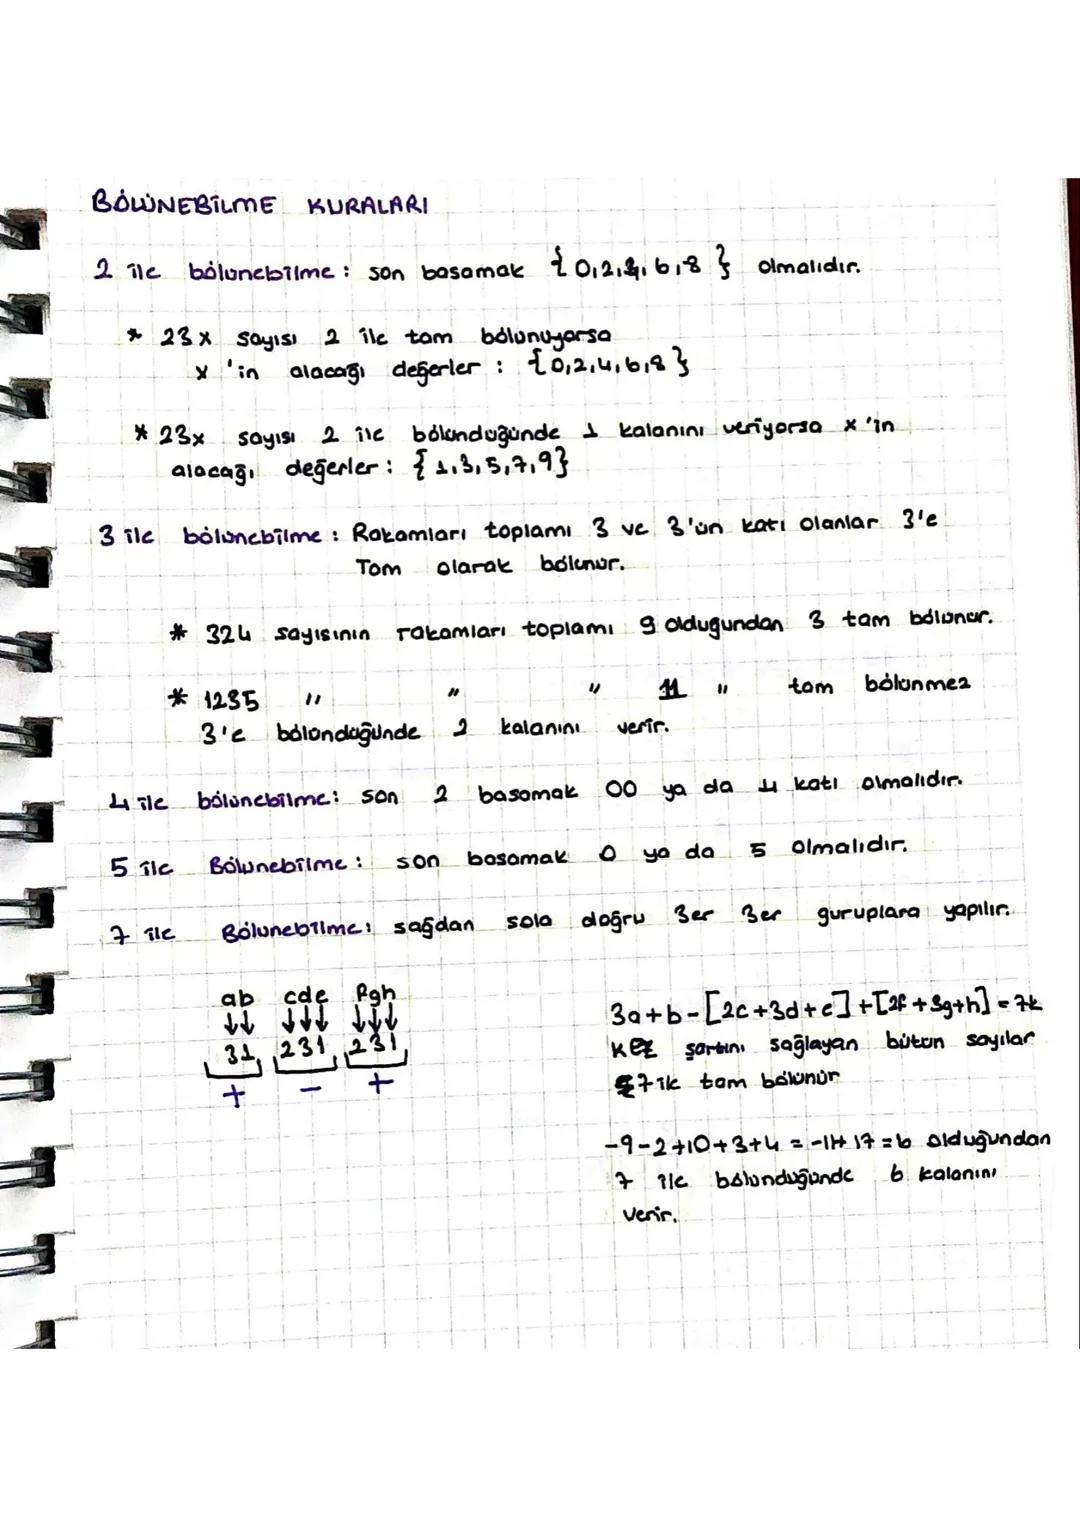 BÖLÜNEBİLME KURALARI
2 ile bölünebilme: son basamak {0,2,4,6,8} olmalıdır.
* 23x sayısı 2 ile tam bölünüyorsa
x'in alacağı değerler : {0,2,4,6,8}
* 23x sayısı 2 ile bölündüğünde 1 kalanını veriyorsa x'in
alacağı değerler: {1,3,5,7,9}
3 ile bölünebilme: Rakamları toplamı 3 ve 3'ün katı olanlar 3'e
Tam olarak bölünür.
* 324 sayısının rakamları toplamı 9 olduğundan 3 tam bölünür.
* 1235 " " " 11 " tam bölünmez
3'e bölündüğünde 2 kalanını verir.
4 ile bölünebilme: son 2 basamak 00 ya da 4 katı olmalıdır.
5 ile Bölünebilme: son basamak 0 ya da 5 olmalıdır.
7 ile Bölünebilme: sağdan sola doğru 3er 3er guruplara yapılır.
ab cde fgh
↓↓ ↓↓↓ ↓↓↓
31, 231, 231
+ - +
3a+b-[2c+3d+e]+[2f+3g+h]=7k
k∈Z şartını sağlayan bütün sayılar
7 ile tam bölünür
-9-2+10+3+4 = -11+17=6 olduğundan
7 ile bölündüğünde 6 kalanını
verir.